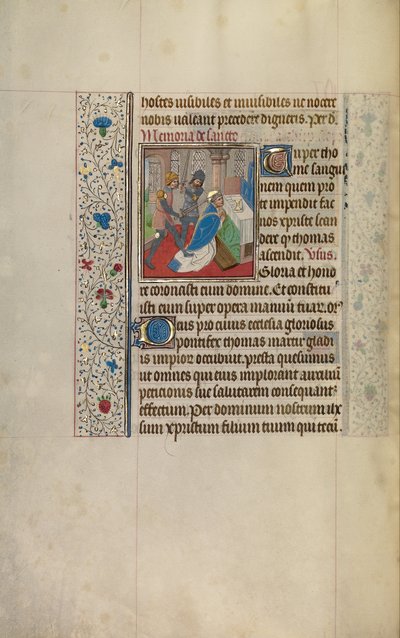 hostes uisibiles et inuisibiles ne nocere
nobis ualeant precedere digneris. Per d.
Memoria de sancto
Tu per tho
me sangui
nem quem pro
te impendit fac
nos xpriste scan
dere q̄ thomas
ascendit. Vsus.
Gloria et hono
re coronasti eum domine. Et constitu
isti eum super opera manuum tuar. or̄
Deus pro cuius ecclesia gloriosus
pontifex thomas martir gladi
is impior occubuit. presta quesumus
ut omnes qui eius implorant auxiliū
peticionis sue salutarem consequant
effectum. Per dominum nostrum ihx
sum xpristum filium tuum qui tecū.